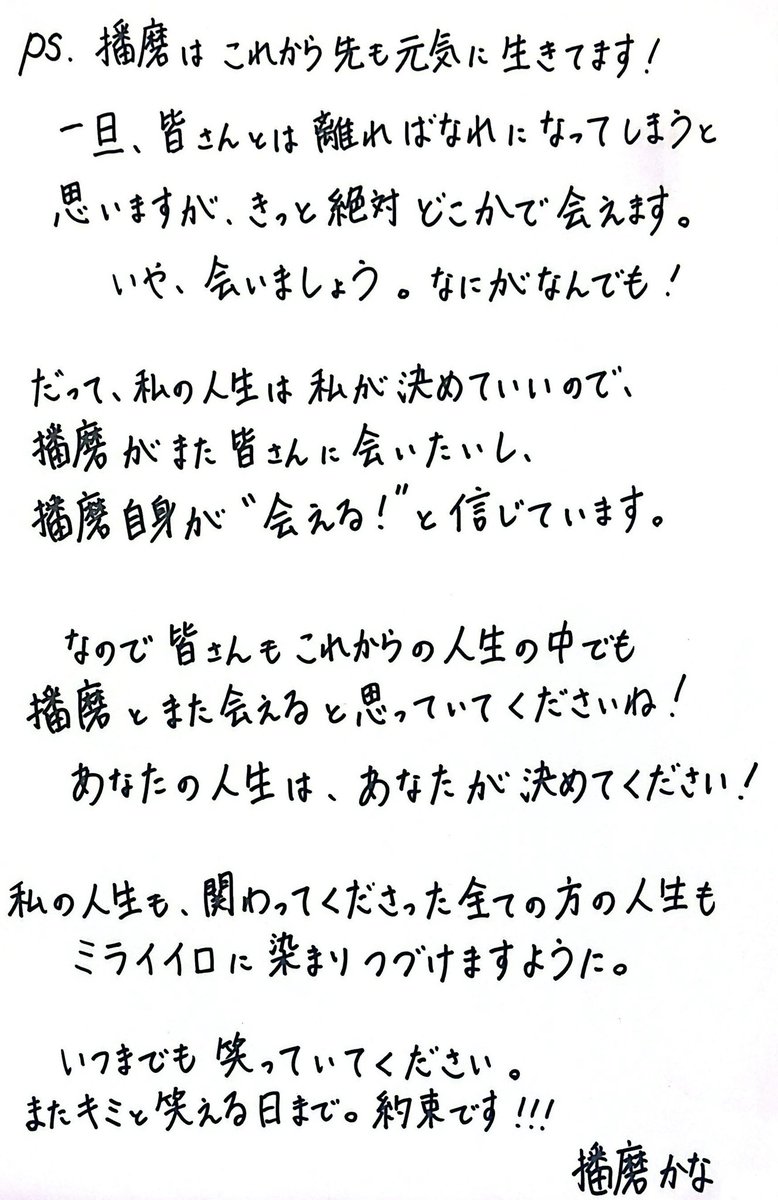 ps. 播磨は これから先も元気に 生きてます！
一旦、皆さんとは 離ればなれに なってしまうと
思いますが、きっと 絶対 どこかで 会えます。
いや、会いましょう。なにがなんでも！
だって、私の人生は 私が 決めていいので、
播磨が また 皆さんに 会いたいし、
播磨自身が“会える！”と 信じています。
なので 皆さんも これからの人生の中でも
播磨と また会えると思っていてくださいね！
あなたの人生は、あなたが 決めてください！
私の人生も、関わってくださった全ての方の人生も
ミライイロに 染まりつづけますように。
いつまでも 笑っていてください。
またキミと笑える日まで。約束です!!!
播磨かな